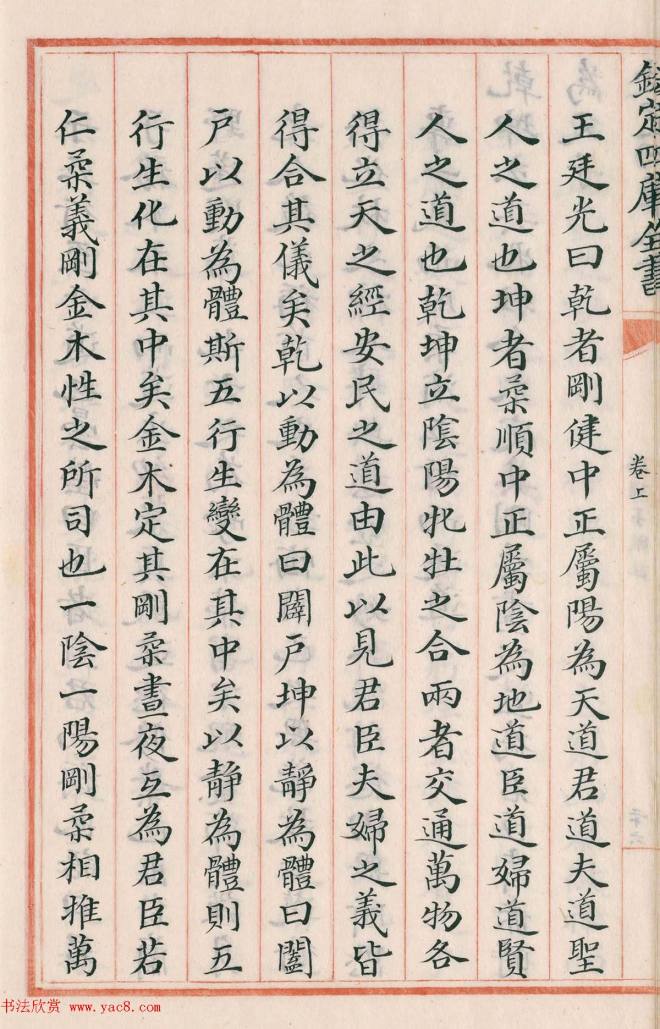 欽定四庫全書
卷上
王廷光曰乾者剛健中正屬陽為天道君道夫道聖
人之道也坤者柔順中正屬陰為地道臣道婦道賢
人之道也乾坤立陰陽牝牡之合兩者交通萬物各
得立天之經安民之道由此以見君臣夫婦之義皆
得合其儀矣乾以動為體曰闢戸坤以靜為體曰闔
戸以動為體斯五行生變在其中矣以静為體則五
行生化在其中矣金木定其剛柔晝夜互為君臣若
仁柔義剛金木性之所司也一陰一陽剛柔相推萬
书法欣赏 www.yac8.com